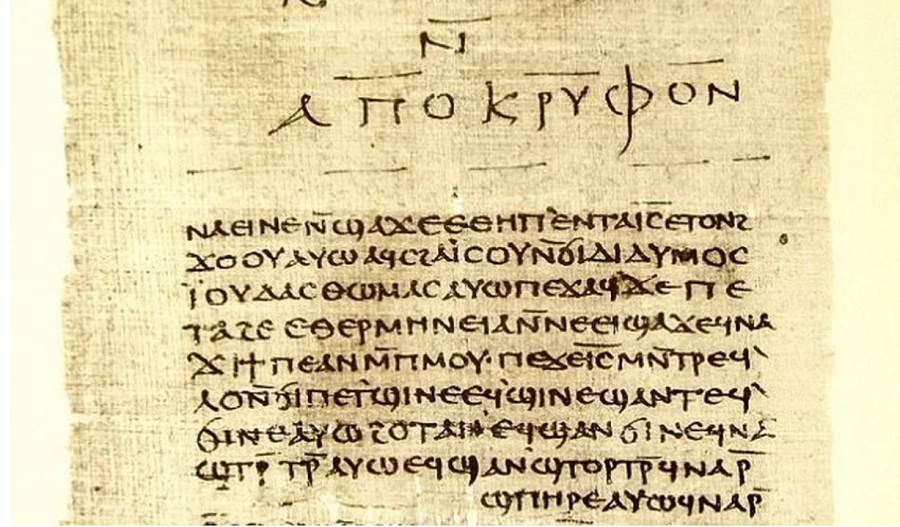 ⲛ̅
ⲁⲡⲟⲕⲣⲩⲫⲟⲛ
ⲛⲁⲉⲓⲛⲉⲛ̅ϣⲁϫⲉⲉⲑⲏⲡ`ⲉⲛⲧⲁⲓ̅ⲥ̅ⲉⲧⲟⲛϩ
ϫⲟⲟⲩⲁⲩⲱⲁϥⲥϩⲁⲓ̈ⲥⲟⲩⲛ̅ϭⲓⲇⲓⲇⲩⲙⲟⲥ
ⲓ̈ⲟⲩⲇⲁⲥⲑⲱⲙⲁⲥⲁⲩⲱⲡⲉϫⲁϥϫⲉⲡⲉ
ⲧⲁϩⲉⲉⲑⲉⲣⲙⲏⲛⲉⲓⲁⲛ̅ⲛⲉⲉⲓϣⲁϫⲉϥⲛⲁ
ϫⲓϯⲡⲉⲁⲛⲙ̅ⲡⲙⲟⲩ·ⲡⲉϫⲉⲓ̅ⲥ̅ⲙⲛ̅ⲧⲣⲉϥ`
ⲗⲟⲛ̅ϭⲓⲡⲉⲧ`ϣⲓⲛⲉⲉϥϣⲓⲛⲉϣⲁⲛⲧⲉϥ`
ϭⲓⲛⲉⲁⲩⲱϩⲟⲧⲁⲛⲉϥϣⲁⲛϭⲓⲛⲉϥⲛⲁ
ϣⲧⲣ̅ⲧⲣ̅ⲁⲩⲱⲉϥϣⲁⲛϣⲧⲟⲣⲧⲣ̅ϥⲛⲁⲣ̅
ϣⲡⲏⲣⲉⲁⲩⲱϥⲛⲁⲣ̅